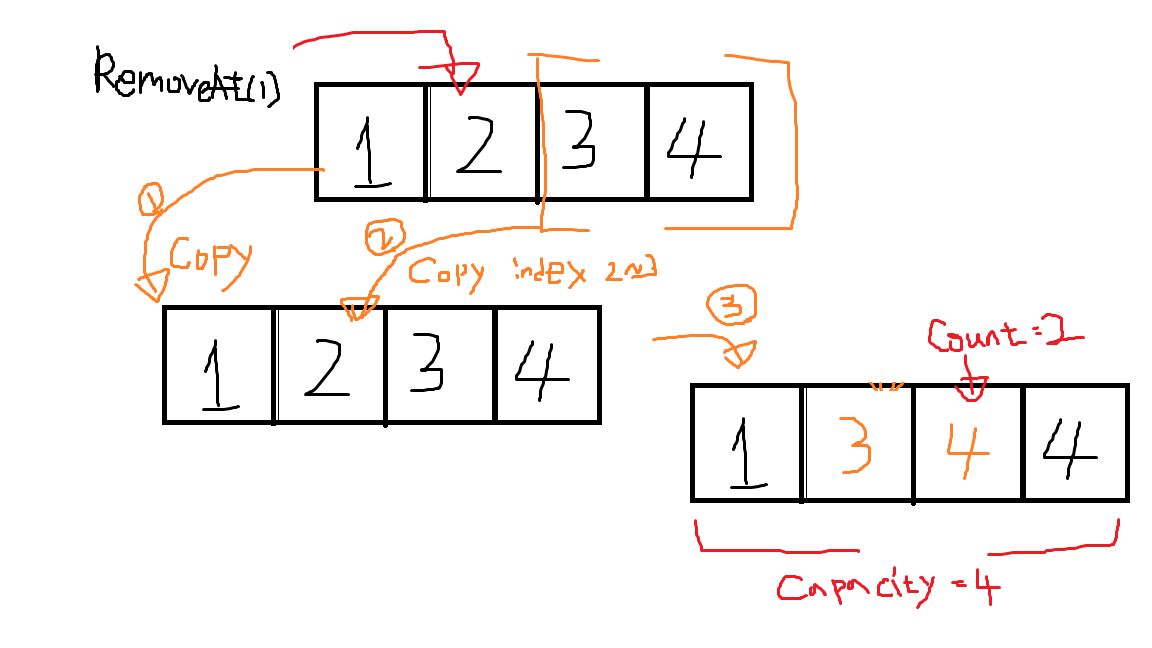 RemoveAt(1)
1 2 3 4
①
Copy
②
Copy index 2~3
1 2 3 4
③
Count=2
1 3 4 4
Capacity=4